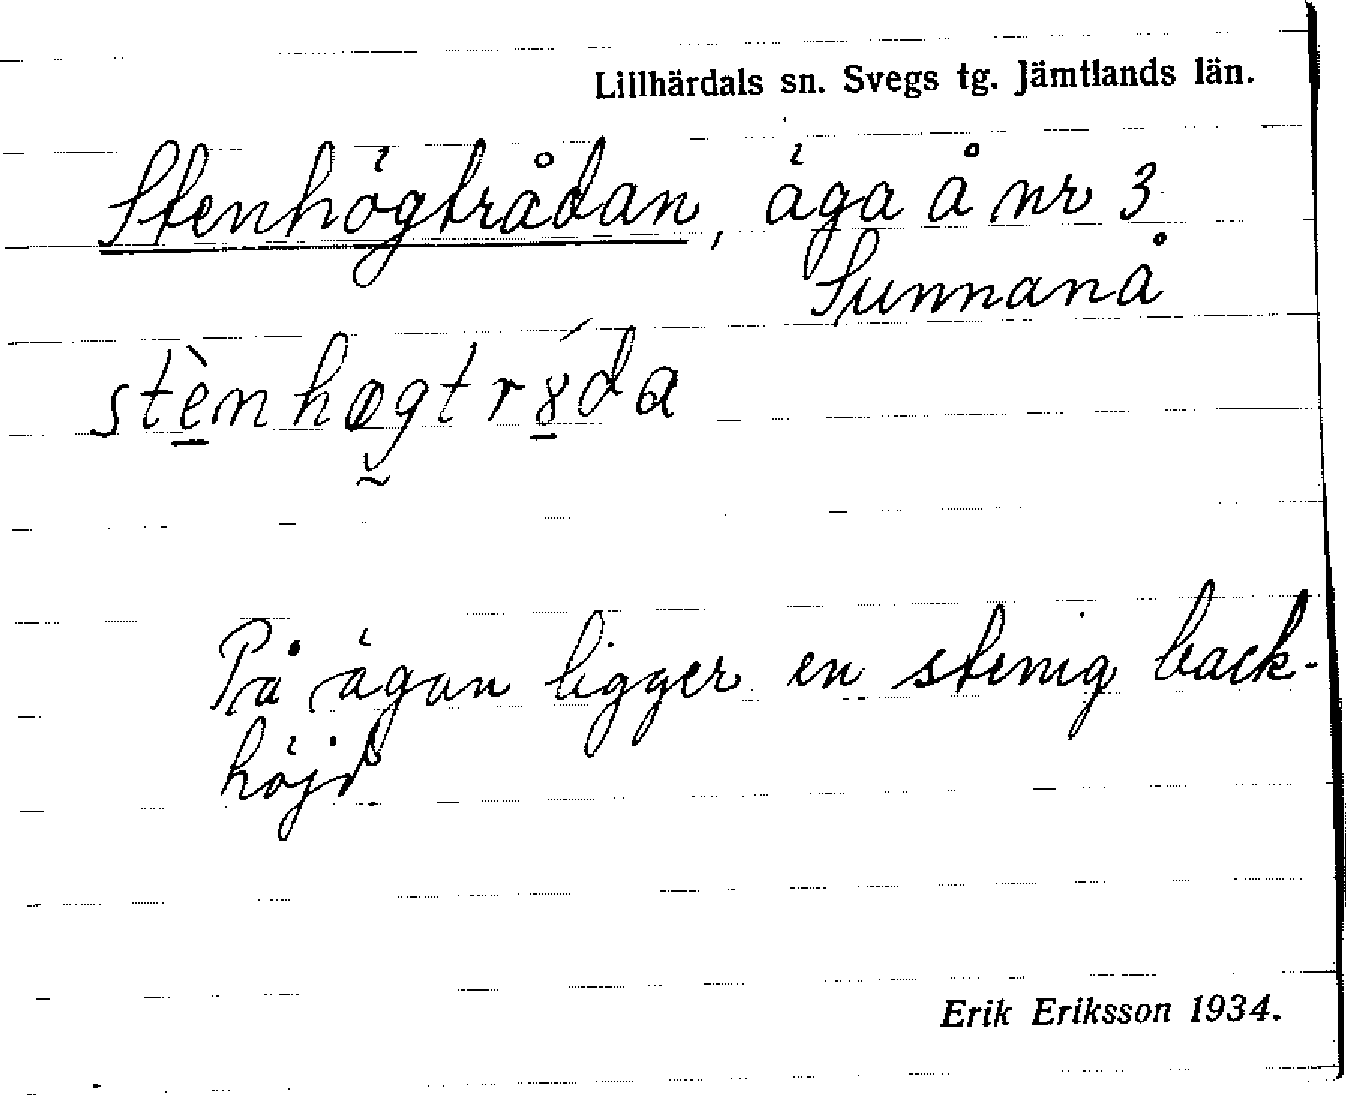 Lillhärdals sn. Svegs tg. Jämtlands län.
Stenhögtrådan, äga å nr 3
Sunnanå
stènhøgtrɤ́da
På ägan ligger en stenig back-
höjd
Erik Eriksson 1934.